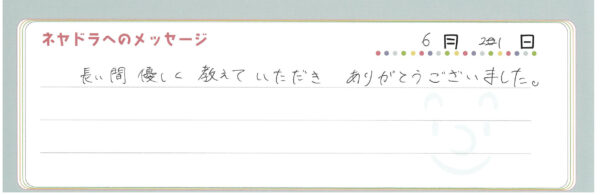 ネヤドラへのメッセージ
6 月 21 日
長い間 優しく 教えて いただき ありがとうございました。